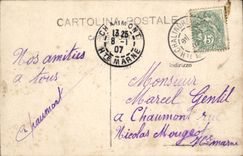 CARTOLINA POSTALE
CHAUMONT
13 25
8-1
07
HTE MARNE
5
Indirizzo
Nos amitiés
à tous
Chaumont
Monsieur
Marcel Gentil
à Chaumont rue
Nicolas Mougeot
Hte Marne